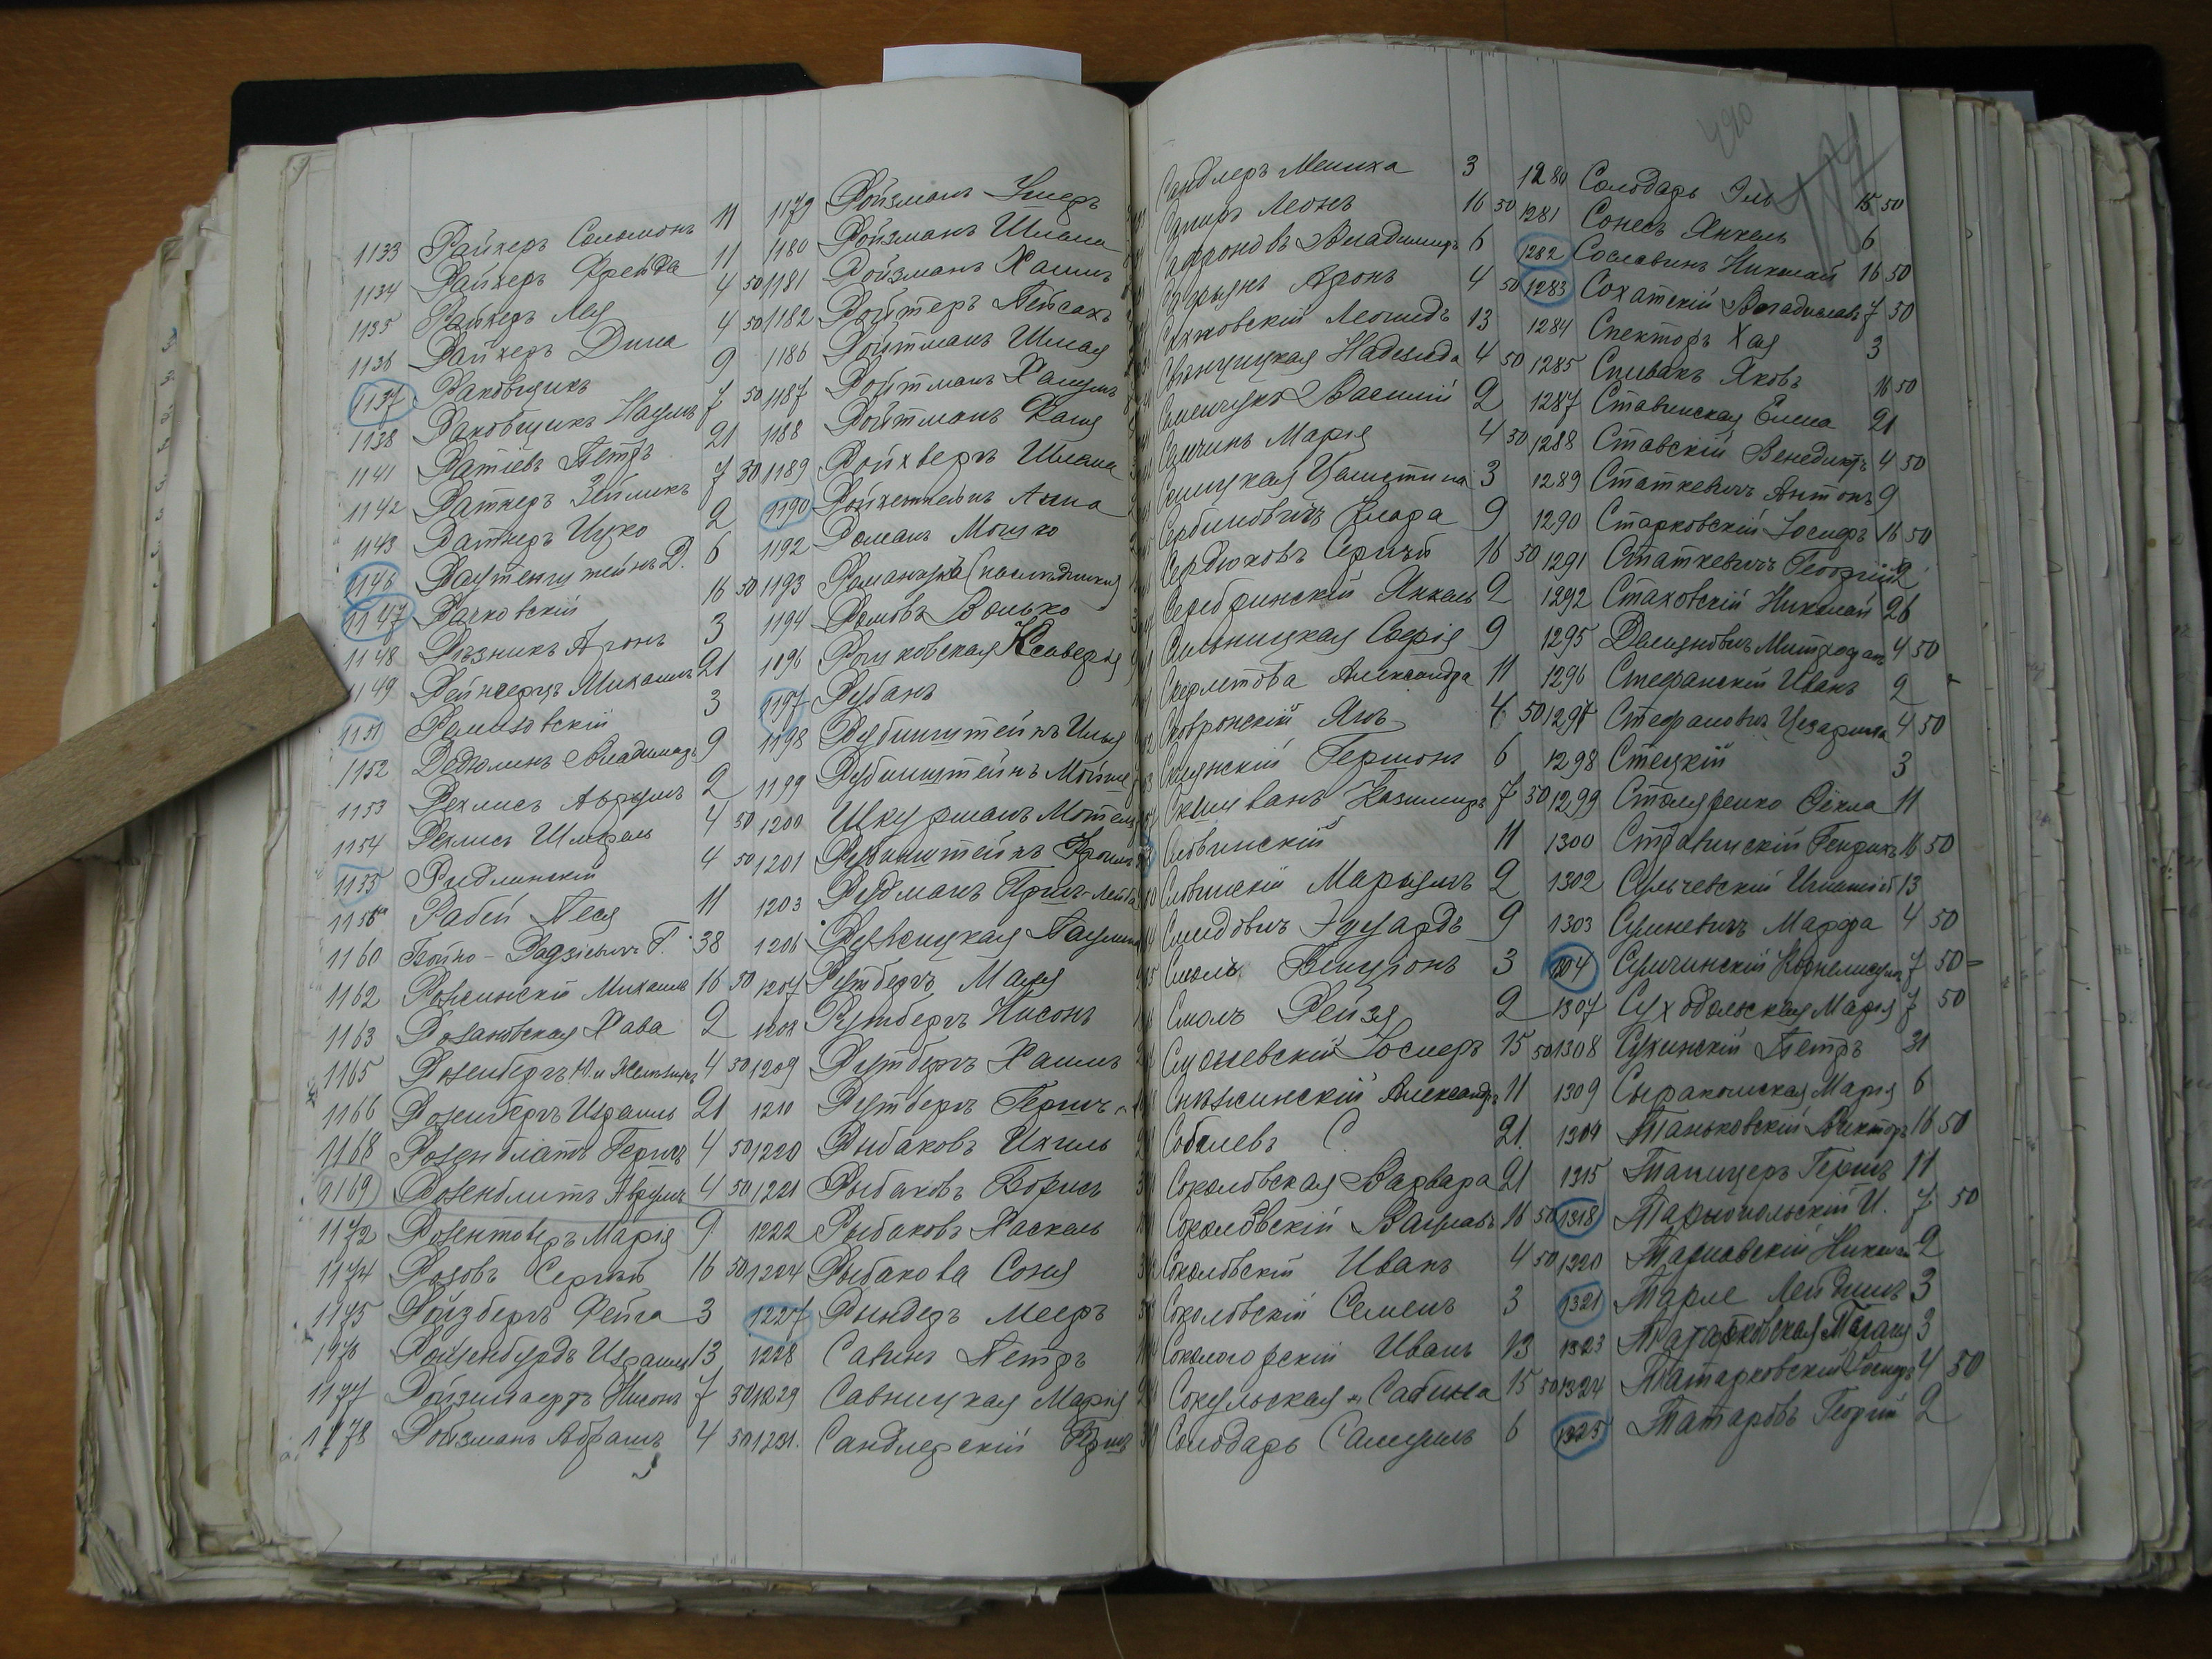 1133 Райхеръ Соломонъ 11
1134 Райхеръ Фрейда 11
1135 Райхеръ Лея 4 50
1136 Райхеръ Дина 4 50
1137 Раковщикъ 9
1138 Раковщикъ Наумъ 7 50
1141 Ратіевъ Петръ 21
1142 Ратнеръ Зейликъ 7 50
1143 Ратнеръ Ицко 2
1146 Раутенштейнъ Д. 6
1147 Рачковскій 16 50
1148 Рѣзникъ Аронъ 3
1149 Михаилъ 21
1151 3
1152 Редюлинъ Владиміръ 9
1153 Рехлисъ Аврумъ 2
1154 Рехлисъ Шмероль 4 50
1155 Ридлинскій 4 50
1156 Рабей Песя 11
1160 Войно-Радзевичъ Г. 38
1162 Рожинскій Михаилъ 16 50
1163 Розановская Хава 2
1165 Розенбергъ Ю. и 4 50
1166 Розенбергъ Израиль 21
1168 Розенблатъ Гершъ 4 50
1169 Розенблитъ Аврумъ 4 50
1172 Розентоверъ Марія 9
1174 Розовъ Сергѣй 16 50
1175 Ройзбергъ Фейга 3
1976 Израиль 13
1177 Нисонъ 7 50
1178 Ройзманъ Абрамъ 4 50
1179 Ройзманъ Умеръ
1180 Ройзманъ Шлема
1181 Ройзманъ Хаимъ
1182 Ройтеръ Пейсахъ
1186 Ройтманъ Шмая
1187 Ройтманъ
1188 Ройтманъ Раня
1189 Ройхвергъ Шлема
1190 Анна
1192 Романъ Мошко
1193 Романчука (наслѣдники)
1194 Ромовъ Волько
1196 Рошковская Ксаверія
1197 Рубанъ
1198 Рубинштейнъ Илья
1199 Рубинштейнъ Мойше
1200 Шкурманъ Мотель
1201 Рубинштейнъ Фроимъ
1203 Рудманъ Гершъ-Лейба
1206 Ружицкая Паулина
1207 Рутбергъ Маня
1208 Рутбергъ Нисонъ
1209 Рутбергъ Хаимъ
1210 Рутбергъ Гершъ
1220 Рыбаковъ Ихиль
1221 Рыбаковъ Борисъ
1222 Рыбаковъ Хаскель
1224 Рыбакова Соня
1227 Рындеръ Мееръ
1228 Савинъ Петръ
1229 Савицкая Марія
1231. Сандлерскій Гершъ
Сандлеръ Мениха 3
Сапиръ Леонъ 16 50
Сафоновъ Владиміръ 6
Аронъ 4 50
Сахновскій Леонидъ 13
Свѣнцицкая Надежда 4 50
Семенчуко Василій 2
Марія 4 50
Сеницкая Целестина 3
Сербиновичъ Клара 9
Сердюковъ Сергѣй 16 50
Серебринскій Янкель 2
Сильницкая Софія 9
Скерлетова Александра 11
Сковронскій Янъ 4 50
Гершонъ 6
Казиміръ 7 50
Словинскій 11
Словинскій Марьянъ 2
Смидовичъ Эдуардъ 9
Смоль Бенціонъ 3
Смоль Рейзя 2
Смолевскій Іосифъ 15 50
Снѣжинскій Александръ 11
Соболевъ С. 21
Соколовская Варвара 21
Соколовскій Вацлавъ 16 50
Соколовскій Иванъ 4 50
Соколовскій Семенъ 3
Сокологорскій Иванъ 13
Сокульская Сабина 15 50
Солодарь Самуилъ 6
490
1280 Солодарь Эль 15 50
1281 Сонесъ Янкель 6
1282 Сославинъ Николай 16 50
1283 Сохатскій Владиславъ 7 50
1284 Спекторъ Хая 3
1285 Спивакъ Яковъ 16 50
1287 Ставинская Елена 21
1288 Ставскій Венедиктъ 4 50
1289 Статкевичъ Антонъ 9
1290 Старковскій Іосифъ 16 50
1291 Статкевичъ Георгій 2
1292 Стаховскій Николай 26
1295 Митрофанъ 4 50
1296 Стефанскій Иванъ 2
1297 Стефановичъ Цезарина 4 50
1298 Стецкій 3
1299 Столяренко Фекла 11
1300 Стравинскій Генрихъ 16 50
1302 Сульчевскій Игнатій 13
1303 Сулиневичъ Марфа 4 50
1304 Сущинскій Корнелиушъ 7 50
1307 Суходольская Марія 7 50
1308 Сухинскій Петръ 31
1309 Сыракомская Марія 6
1304 Таньковскій Викторъ 16 50
1315 Тапицеръ Гершъ 11
1318 Тарнопольскій И. 7 50
1320 Тарновскій Николай 2
1321 Тарле Лейдишъ 3
1323 Татарковская 3
1324 Татарковскій Іосифъ 4 50
1325 Татаровъ Георгій 2